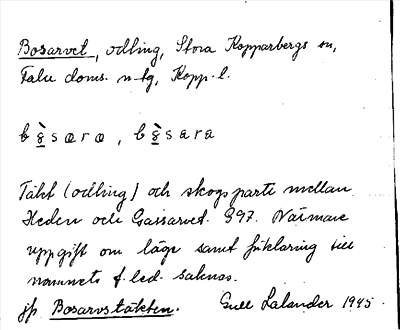 Bosarvet, odling, Stora Kopparbergs sn,
Falu doms. n-lg, Kopp. l.
Täkt (odling) och skogsparti mellan
Heden och Gaisarvet. 397. Närmare
uppgift om läge samt förklaring till
namnets f. led. saknas.
jfr Bosarvstäkten. Gull Lalander 1945.